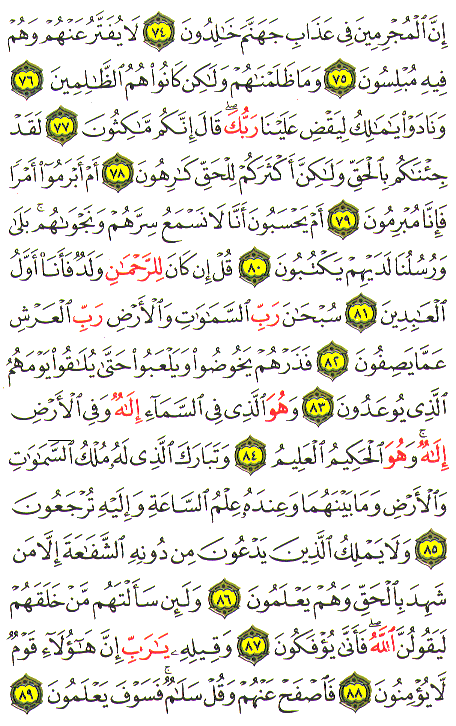 إِنَّ ٱلْمُجْرِمِينَ فِى عَذَابِ جَهَنَّمَ خَٰلِدُونَ ٧٤ لَا يُفَتَّرُ عَنْهُمْ وَهُمْ
فِيهِ مُبْلِسُونَ ٧٥ وَمَا ظَلَمْنَٰهُمْ وَلَٰكِن كَانُوا۟ هُمُ ٱلظَّٰلِمِينَ ٧٦
وَنَادَوْا۟ يَٰمَٰلِكُ لِيَقْضِ عَلَيْنَا رَبُّكَ ۖ قَالَ إِنَّكُم مَّٰكِثُونَ ٧٧ لَقَدْ
جِئْنَٰكُم بِٱلْحَقِّ وَلَٰكِنَّ أَكْثَرَكُمْ لِلْحَقِّ كَٰرِهُونَ ٧٨ أَمْ أَبْرَمُوٓا۟ أَمْرًا
فَإِنَّا مُبْرِمُونَ ٧٩ أَمْ يَحْسَبُونَ أَنَّا لَا نَسْمَعُ سِرَّهُمْ وَنَجْوَىٰهُم ۚ بَلَىٰ
وَرُسُلُنَا لَدَيْهِمْ يَكْتُبُونَ ٨٠ قُلْ إِن كَانَ لِلرَّحْمَٰنِ وَلَدٌ فَأَنَا۠ أَوَّلُ
ٱلْعَٰبِدِينَ ٨١ سُبْحَٰنَ رَبِّ ٱلسَّمَٰوَٰتِ وَٱلْأَرْضِ رَبِّ ٱلْعَرْشِ
عَمَّا يَصِفُونَ ٨٢ فَذَرْهُمْ يَخُوضُوا۟ وَيَلْعَبُوا۟ حَتَّىٰ يُلَٰقُوا۟ يَوْمَهُمُ
ٱلَّذِى يُوعَدُونَ ٨٣ وَهُوَ ٱلَّذِى فِى ٱلسَّمَآءِ إِلَٰهٌ وَفِى ٱلْأَرْضِ
إِلَٰهٌ ۚ وَهُوَ ٱلْحَكِيمُ ٱلْعَلِيمُ ٨٤ وَتَبَارَكَ ٱلَّذِى لَهُۥ مُلْكُ ٱلسَّمَٰوَٰتِ
وَٱلْأَرْضِ وَمَا بَيْنَهُمَا وَعِندَهُۥ عِلْمُ ٱلسَّاعَةِ وَإِلَيْهِ تُرْجَعُونَ
٨٥ وَلَا يَمْلِكُ ٱلَّذِينَ يَدْعُونَ مِن دُونِهِ ٱلشَّفَٰعَةَ إِلَّا مَن
شَهِدَ بِٱلْحَقِّ وَهُمْ يَعْلَمُونَ ٨٦ وَلَئِن سَأَلْتَهُم مَّنْ خَلَقَهُمْ
لَيَقُولُنَّ ٱللَّهُ ۖ فَأَنَّىٰ يُؤْفَكُونَ ٨٧ وَقِيلِهِۦ يَٰرَبِّ إِنَّ هَٰٓؤُلَآءِ قَوْمٌ
لَّا يُؤْمِنُونَ ٨٨ فَٱصْفَحْ عَنْهُمْ وَقُلْ سَلَٰمٌ ۚ فَسَوْفَ يَعْلَمُونَ ٨٩